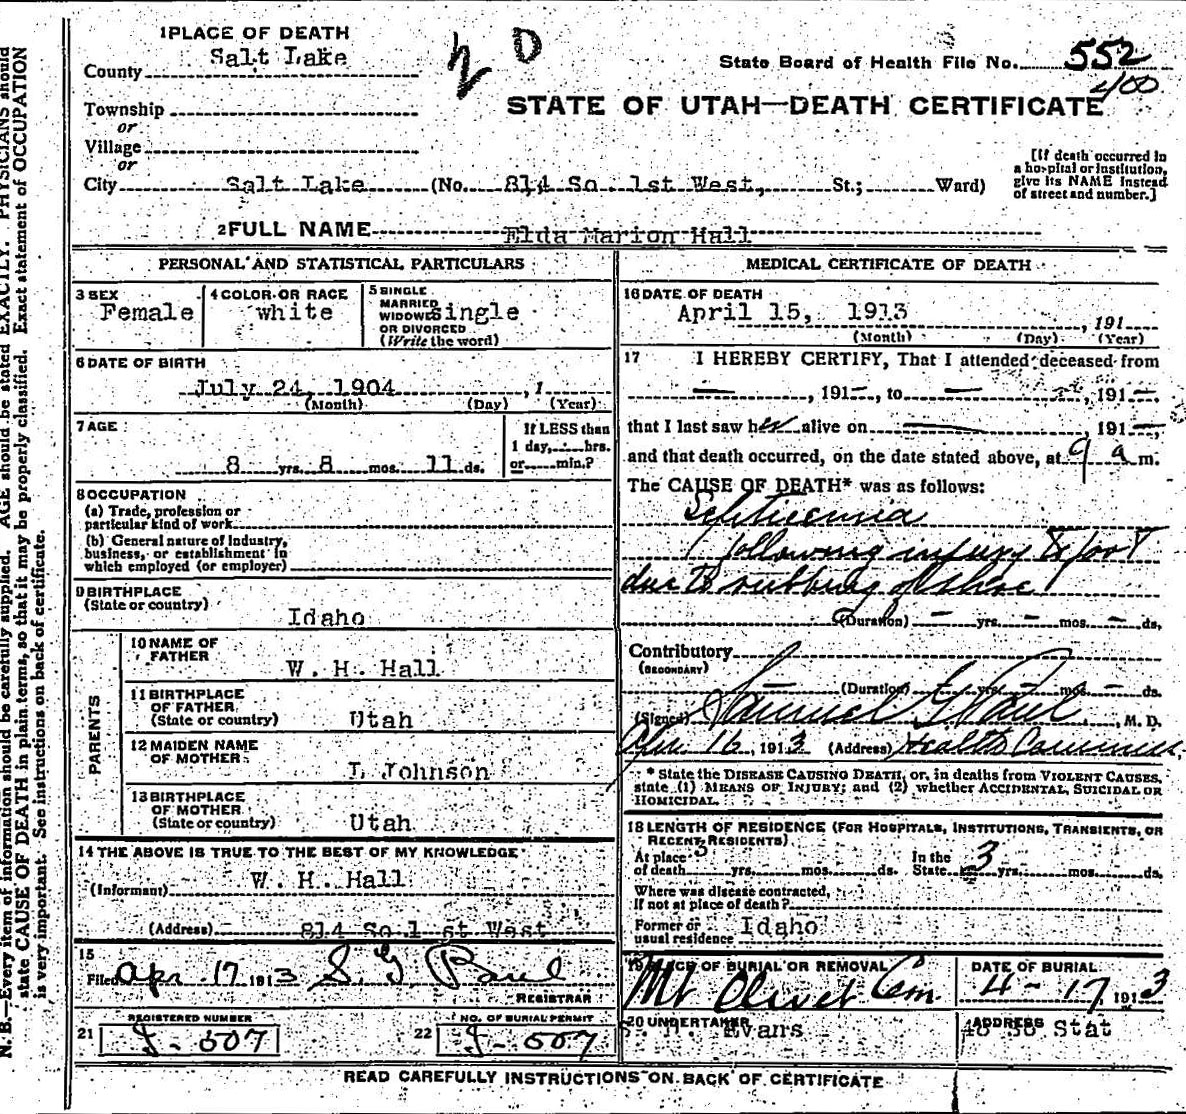 1 PLACE OF DEATH
County Salt Lake
Township
or
Village
or
City Salt Lake (No. 814 So. 1st West, St.; Ward)
State Board of Health File No. 552
400
STATE OF UTAH—DEATH CERTIFICATE
[If death occurred in
a hospital or institution,
give its NAME instead
of street and number.]
2 FULL NAME Elda Marion Hall
PERSONAL AND STATISTICAL PARTICULARS
3 SEX
Female
4 COLOR OR RACE
white
5 SINGLE
MARRIED
WIDOWED single
OR DIVORCED
(Write the word)
6 DATE OF BIRTH
July 24, 1904, 1
(Month) (Day) (Year)
7 AGE
8 yrs. 8 mos. 11 ds.
If LESS than
1 day, hrs.
or min.?
8 OCCUPATION
(a) Trade, profession or
particular kind of work
(b) General nature of industry,
business, or establishment in
which employed (or employer)
9 BIRTHPLACE
(State or country)
Idaho
PARENTS
10 NAME OF
FATHER
W. H. Hall
11 BIRTHPLACE
OF FATHER
(State or country) Utah
12 MAIDEN NAME
OF MOTHER
L Johnson
13 BIRTHPLACE
OF MOTHER
(State or country) Utah
14 THE ABOVE IS TRUE TO THE BEST OF MY KNOWLEDGE
(Informant) W. H. Hall
(Address) 814 So 1 st West
15
Filed Apr. 17 1913 S. G. Paul
REGISTRAR
REGISTERED NUMBER
21 J-507
NO. OF BURIAL PERMIT
22 J-507
MEDICAL CERTIFICATE OF DEATH
16 DATE OF DEATH
April 15, 1913, 191
(Month) (Day) (Year)
17 I HEREBY CERTIFY, That I attended deceased from
—, 191—, to — —, 191—,
that I last saw her alive on —, 191—,
and that death occurred, on the date stated above, at 9 a m.
The CAUSE OF DEATH* was as follows:
Septicemia
following injury to foot
due to rubbing of shoe
(Duration) — yrs. — mos. — ds.
Contributory
(SECONDARY)
(Duration) — yrs. — mos. — ds.
(Signed) Samuel G. Paul, M. D.
Apr. 16, 1913 (Address) Health Commiss.
* State the DISEASE CAUSING DEATH, or, in deaths from VIOLENT CAUSES,
state (1) MEANS OF INJURY; and (2) whether ACCIDENTAL, SUICIDAL OR
HOMICIDAL.
18 LENGTH OF RESIDENCE (FOR HOSPITALS, INSTITUTIONS, TRANSIENTS, OR
RECENT RESIDENTS)
At place 3
of death yrs. mos. ds.
In the
State 3 yrs. mos. ds.
Where was disease contracted,
If not at place of death?
Former or
usual residence Idaho
19 PLACE OF BURIAL OR REMOVAL
Mt Olivet Cem.
DATE OF BURIAL
4-17, 1913
20 UNDERTAKER
Evans
ADDRESS
Stat
READ CAREFULLY INSTRUCTIONS ON BACK OF CERTIFICATE
N. B.—Every item of information should be carefully supplied. AGE should be stated EXACTLY. PHYSICIANS should
state CAUSE OF DEATH in plain terms, so that it may be properly classified. Exact statement of OCCUPATION
is very important. See instructions on back of certificate.